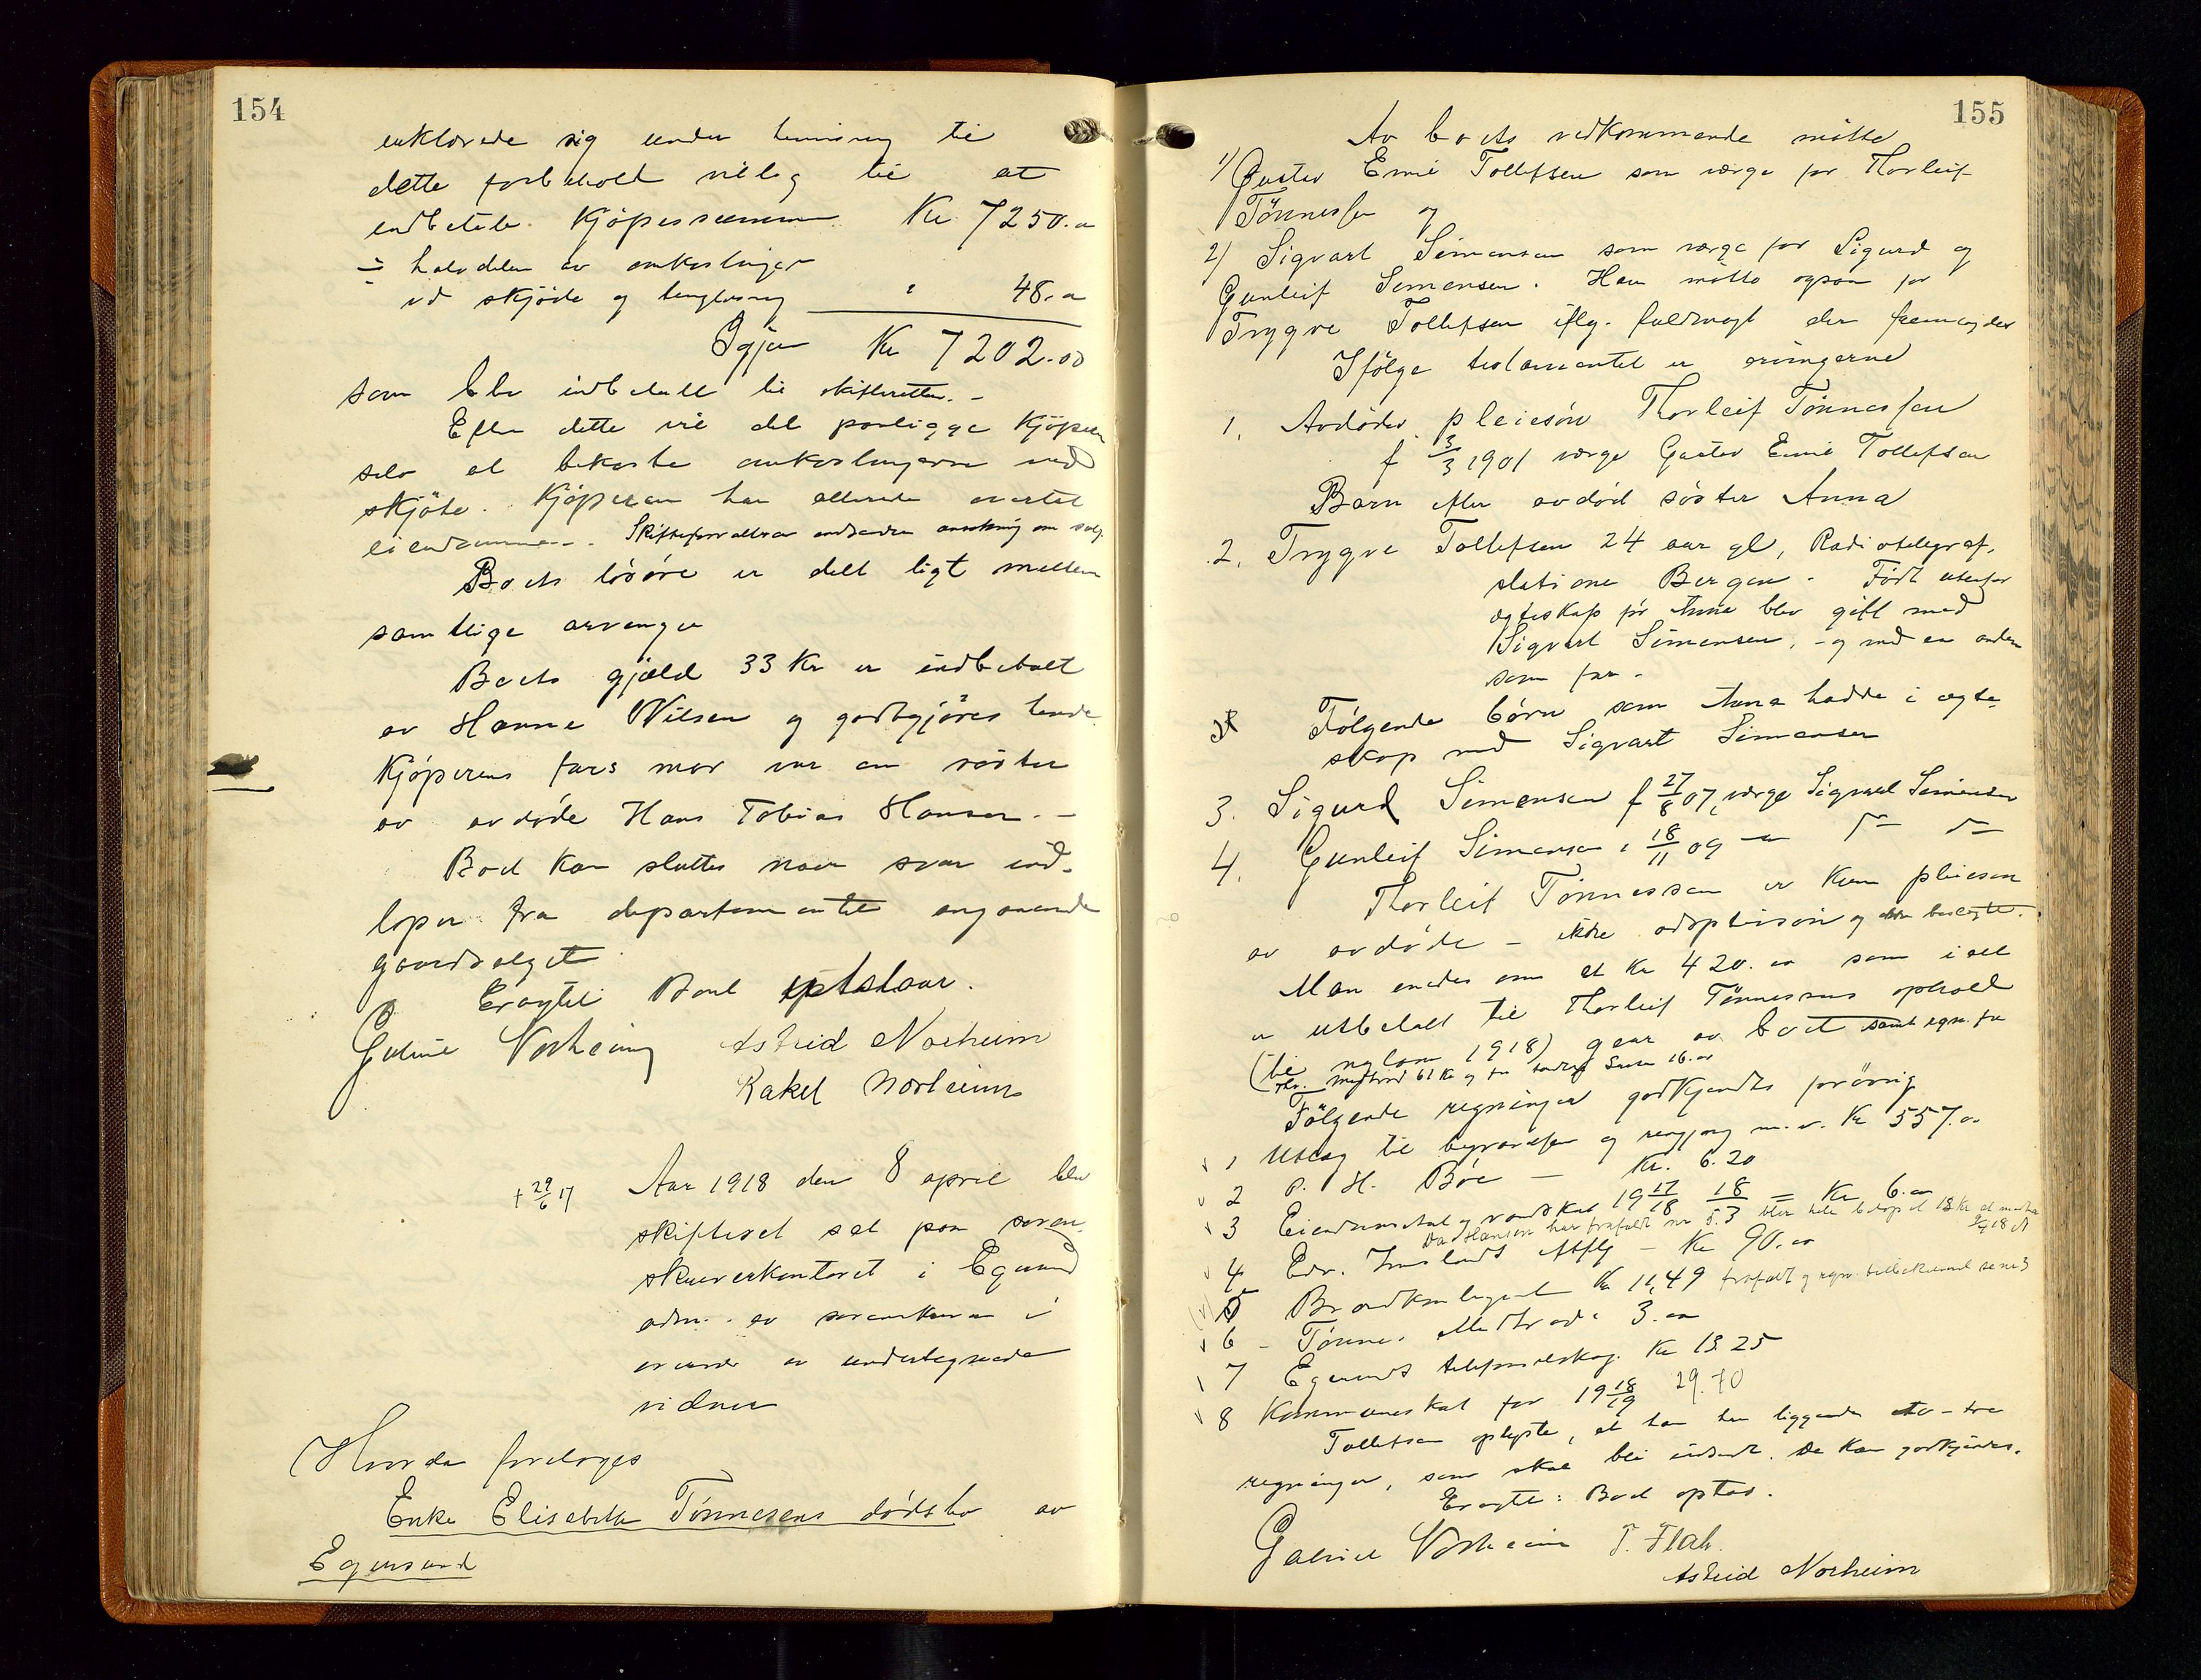 154
erklærede sig under henvisning til
dette forbehold villig til at
indbetale kjøpesummen Kr 7250.00
÷ halvdelen av omkostninger
ved skjøde og tinglysning " 48.00
Igjen Kr 7202.00
som blev indbetalt til skifteretten. –
Efter dette vil det paaligge Kjøperen
selv at bekoste omkostningerne ved
skjøte. Kjøperen har allerede overtat
eiendommen. Skifteforvalteren indsender ansøkning om salg.
Boets løsøre er delt ligt mellem
samtlige arvinger
Boets gjæld 33 Kr er indbetalt
av Hanne Nilsen og godtgjøres hende.
Kjøperens fars mor var en søster
av avdøde Hans Tobias Hansen. –
Boet kan sluttes naar svar ind-
løper fra departementet angaaende
gaardsalget
Eragtet: Boet optataar.
Gabriel Norheim Astrid Norheim
Rakel Norheim
† 29/6 17 Aar 1918 den 8 april blev
skifteret sat paa soren-
skriverkontoret i Egersund
adm. av sorenskriveren i
overvær av undertegnede
vidner
Hvorda foretoges
Enke Elisabeth Tønnesens dødsbo av
Egersund
155
Av boets vedkommende møtte
1) Gustav Emil Tollefsen som værge for Thorleif
Tønnessen og
2) Sigvart Simensen som værge for Sigurd og
Gunleif Simensen. Han møtte ogsaa for
Trygve Tollefsen iflg. fuldmagt der fremlagdes
Ifølge testamentet er arvingerne
1. Avdødes pleiesøn Thorleif Tønnessen
f 3/3 1901 værge Gustav Emil Tollefsen
Barn efter avdød søster Anna
2. Trygve Tollefsen 24 aar gl, Radiotelegraf-
stationen Bergen. Født utenfor
egteskap før Anna blev gift med
Sigvart Simensen, – og med en anden
som far.
Følgende børn som Anna hadde i egte-
skap med Sigvart Simensen
3. Sigurd Simensen f 27/8 07, værge Sigvard Simensen
4. Gunleif Simensen " 18/11 09 – " –
Thorleif Tønnessen er kun pleiesøn
av avdøde – ikke adoptivsøn og ikke beslegtet.
Man enedes om at Kr 420.00 som i alt
er utbetalt til Thorleif Tønnessens ophold
(til nyaar 1918) gaar av boet samt regn. fra
Følgende regninger godkjendtes forøvrig
1 Utlæg til begravelsen og rengjøring m.v. Kr 557.00
2 P. H. Bøe – Kr. 6.20
3 Eiendomsskat og vandskat 1917/18 18 = Kr 6.00
4 Edv. Imslands eftflg – Kr 90.00
5 Brandkontingent Kr 11,49 frafaldt
6 – Tønnes Medhrad " 3.00
7 Egersunds telefonselskap. Kr 13.25
8 Kommuneskat for 1918/19 29.70
Tollefsen oplyste, at han har liggende to–tre
regninger, som skal bli indsendt. De kan godkjendes.
Eragtet: Boet optas.
Gabriel Norheim T. Flah.
Astrid Norheim